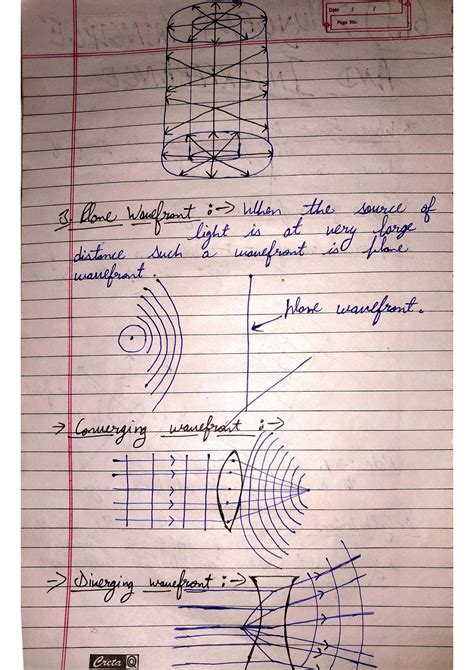 Date / /
Page No.
3. Plane Wavefront :→ When the source of
light is at very large
distance such a wavefront is plane
wavefront.
plane wavefront.
→ Converging wavefront :→
→ Diverging wavefront :→
Creta